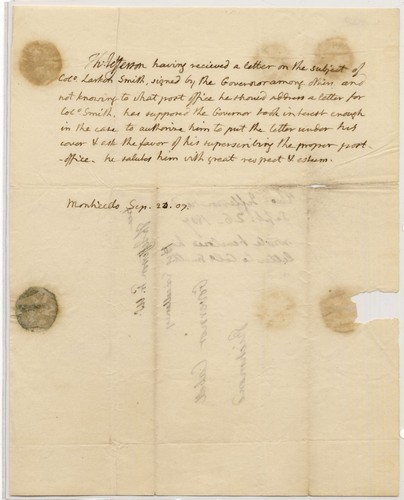 Th: Jefferson having recieved a letter on the subject of
Colo. Larkin Smith, signed by the Governor among others and
not knowing to what post office he should address a letter for
Colo. Smith, has supposed the Governor took interest enough
in the case to authorise him to put the letter under his
cover & ask the favor of his superscribing the proper post-
office. he salutes him with great respect & esteem.
Monticello Sep. 20. 07.
Governor Cabell
Richmond